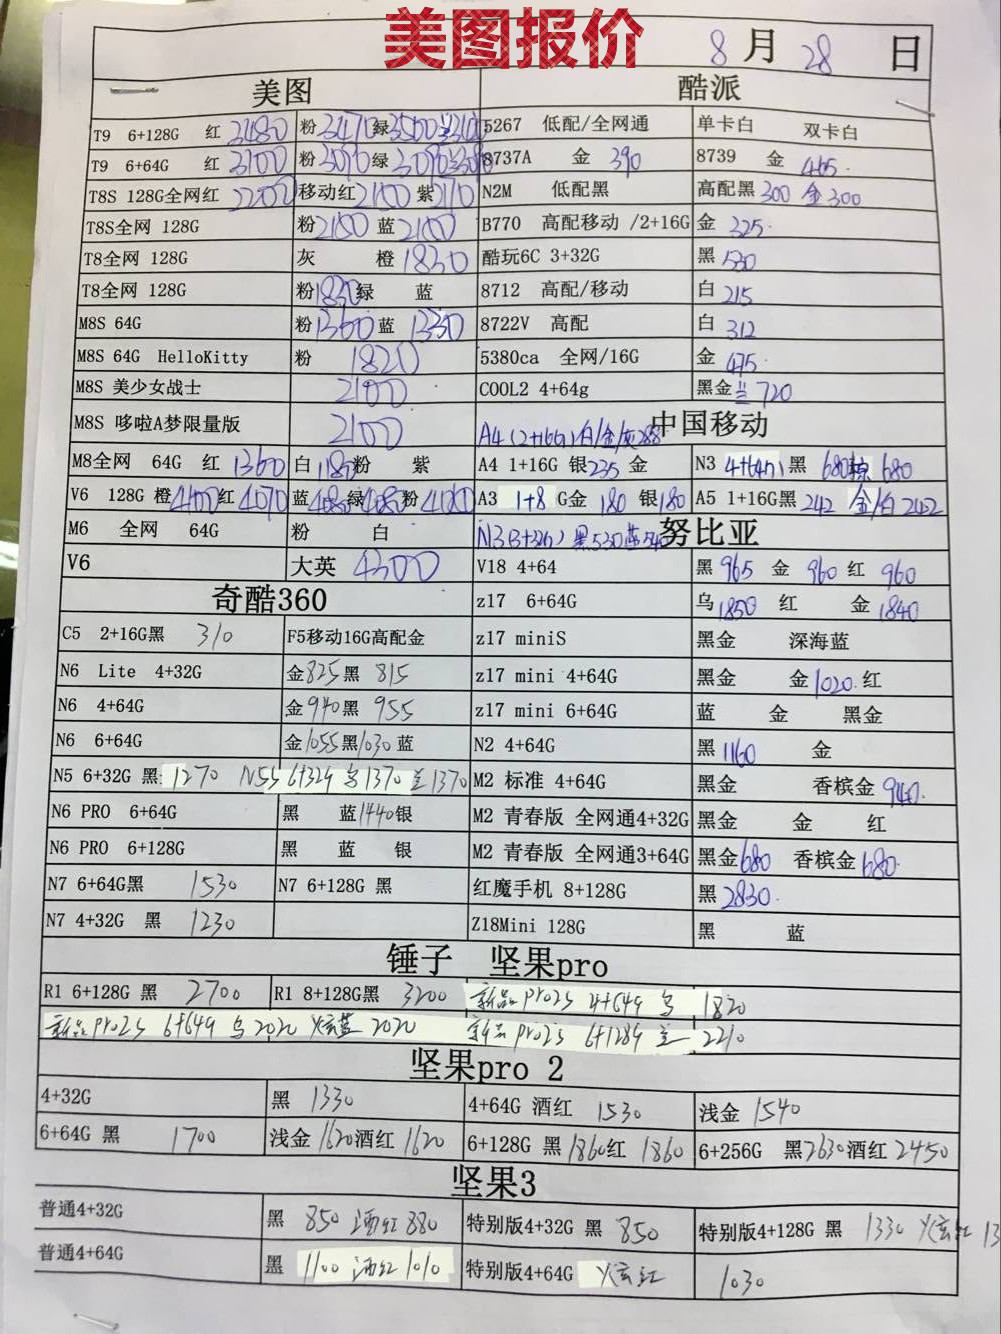 美图报价
8 月 28 日
美图 酷派
T9 6+128G 红 3480 粉 3470 绿 3500 5267 低配/全网通 单卡白 双卡白
T9 6+64G 红 3100 粉 3090 绿 3090 8737A 金 390 8739 金 465
T8S 128G全网红 2200 移动红 2100 紫 2170 N2M 低配黑 高配黑 300 金 300
T8S全网 128G 粉 2100 蓝 2100 B770 高配移动 /2+16G 金 325
T8全网 128G 灰 橙 1830 酷玩6C 3+32G 黑 530
T8全网 128G 粉 1830 绿 蓝 8712 高配/移动 白 215
M8S 64G 粉 1360 蓝 1330 8722V 高配 白 312
M8S 64G HelloKitty 粉 1820 5380ca 全网/16G 金 475
M8S 美少女战士 2100 COOL2 4+64g 黑金 兰 720
M8S 哆啦A梦限量版 2100 A4(2+16G)白/金/灰288 中国移动
M8全网 64G 红 1360 白 粉 紫 A4 1+16G 银 235 金 N3 4+64G) 黑 680 680
V6 128G 橙 4100 红 4070 蓝 4080 绿 4080 粉 A3 1+8 G金 180 银 180 A5 1+16G黑 242 金/白 242
M6 全网 64G 粉 白 N3(3+32G) 黑530 努比亚
V6 大英 4300 V18 4+64 黑 965 金 960 红 960
奇酷360 z17 6+64G 乌 1850 红 金 1840
C5 2+16G黑 310 F5移动16G高配金 z17 miniS 黑金 深海蓝
N6 Lite 4+32G 金 825 黑 815 z17 mini 4+64G 黑金 金 1020 红
N6 4+64G 金 940 黑 955 z17 mini 6+64G 蓝 金 黑金
N6 6+64G 金 1055 黑 1030 蓝 N2 4+64G 黑 1160 金
N5 6+32G 黑 1270 N5S 6+32G 乌 1370 兰 1370 M2 标准 4+64G 黑金 香槟金 940
N6 PRO 6+64G 黑 蓝 1440 银 M2 青春版 全网通4+32G 黑金 金 红
N6 PRO 6+128G 黑 蓝 银 M2 青春版 全网通3+64G 黑金 680 香槟金 680
N7 6+64G黑 1530 N7 6+128G 黑 红魔手机 8+128G 黑 2830
N7 4+32G 黑 1230 Z18Mini 128G 黑 蓝
锤子 坚果pro
R1 6+128G 黑 2700 R1 8+128G黑 3200 新品 pro2s 4+64G 乌 1820
新品 pro2s 6+64G 乌 2020 炫蓝 2020 新品 pro2s 6+128G 兰 2210
坚果pro 2
4+32G 黑 1330 4+64G 酒红 1530 浅金 1540
6+64G 黑 1700 浅金 1620 酒红 1620 6+128G 黑 1860 红 1860 6+256G 黑 2630 酒红 2450
坚果3
普通4+32G 黑 850 酒红 880 特别版4+32G 黑 850 特别版4+128G 黑 1330 炫红 13
普通4+64G 黑 1100 酒红 1010 特别版4+64G 炫红 1030